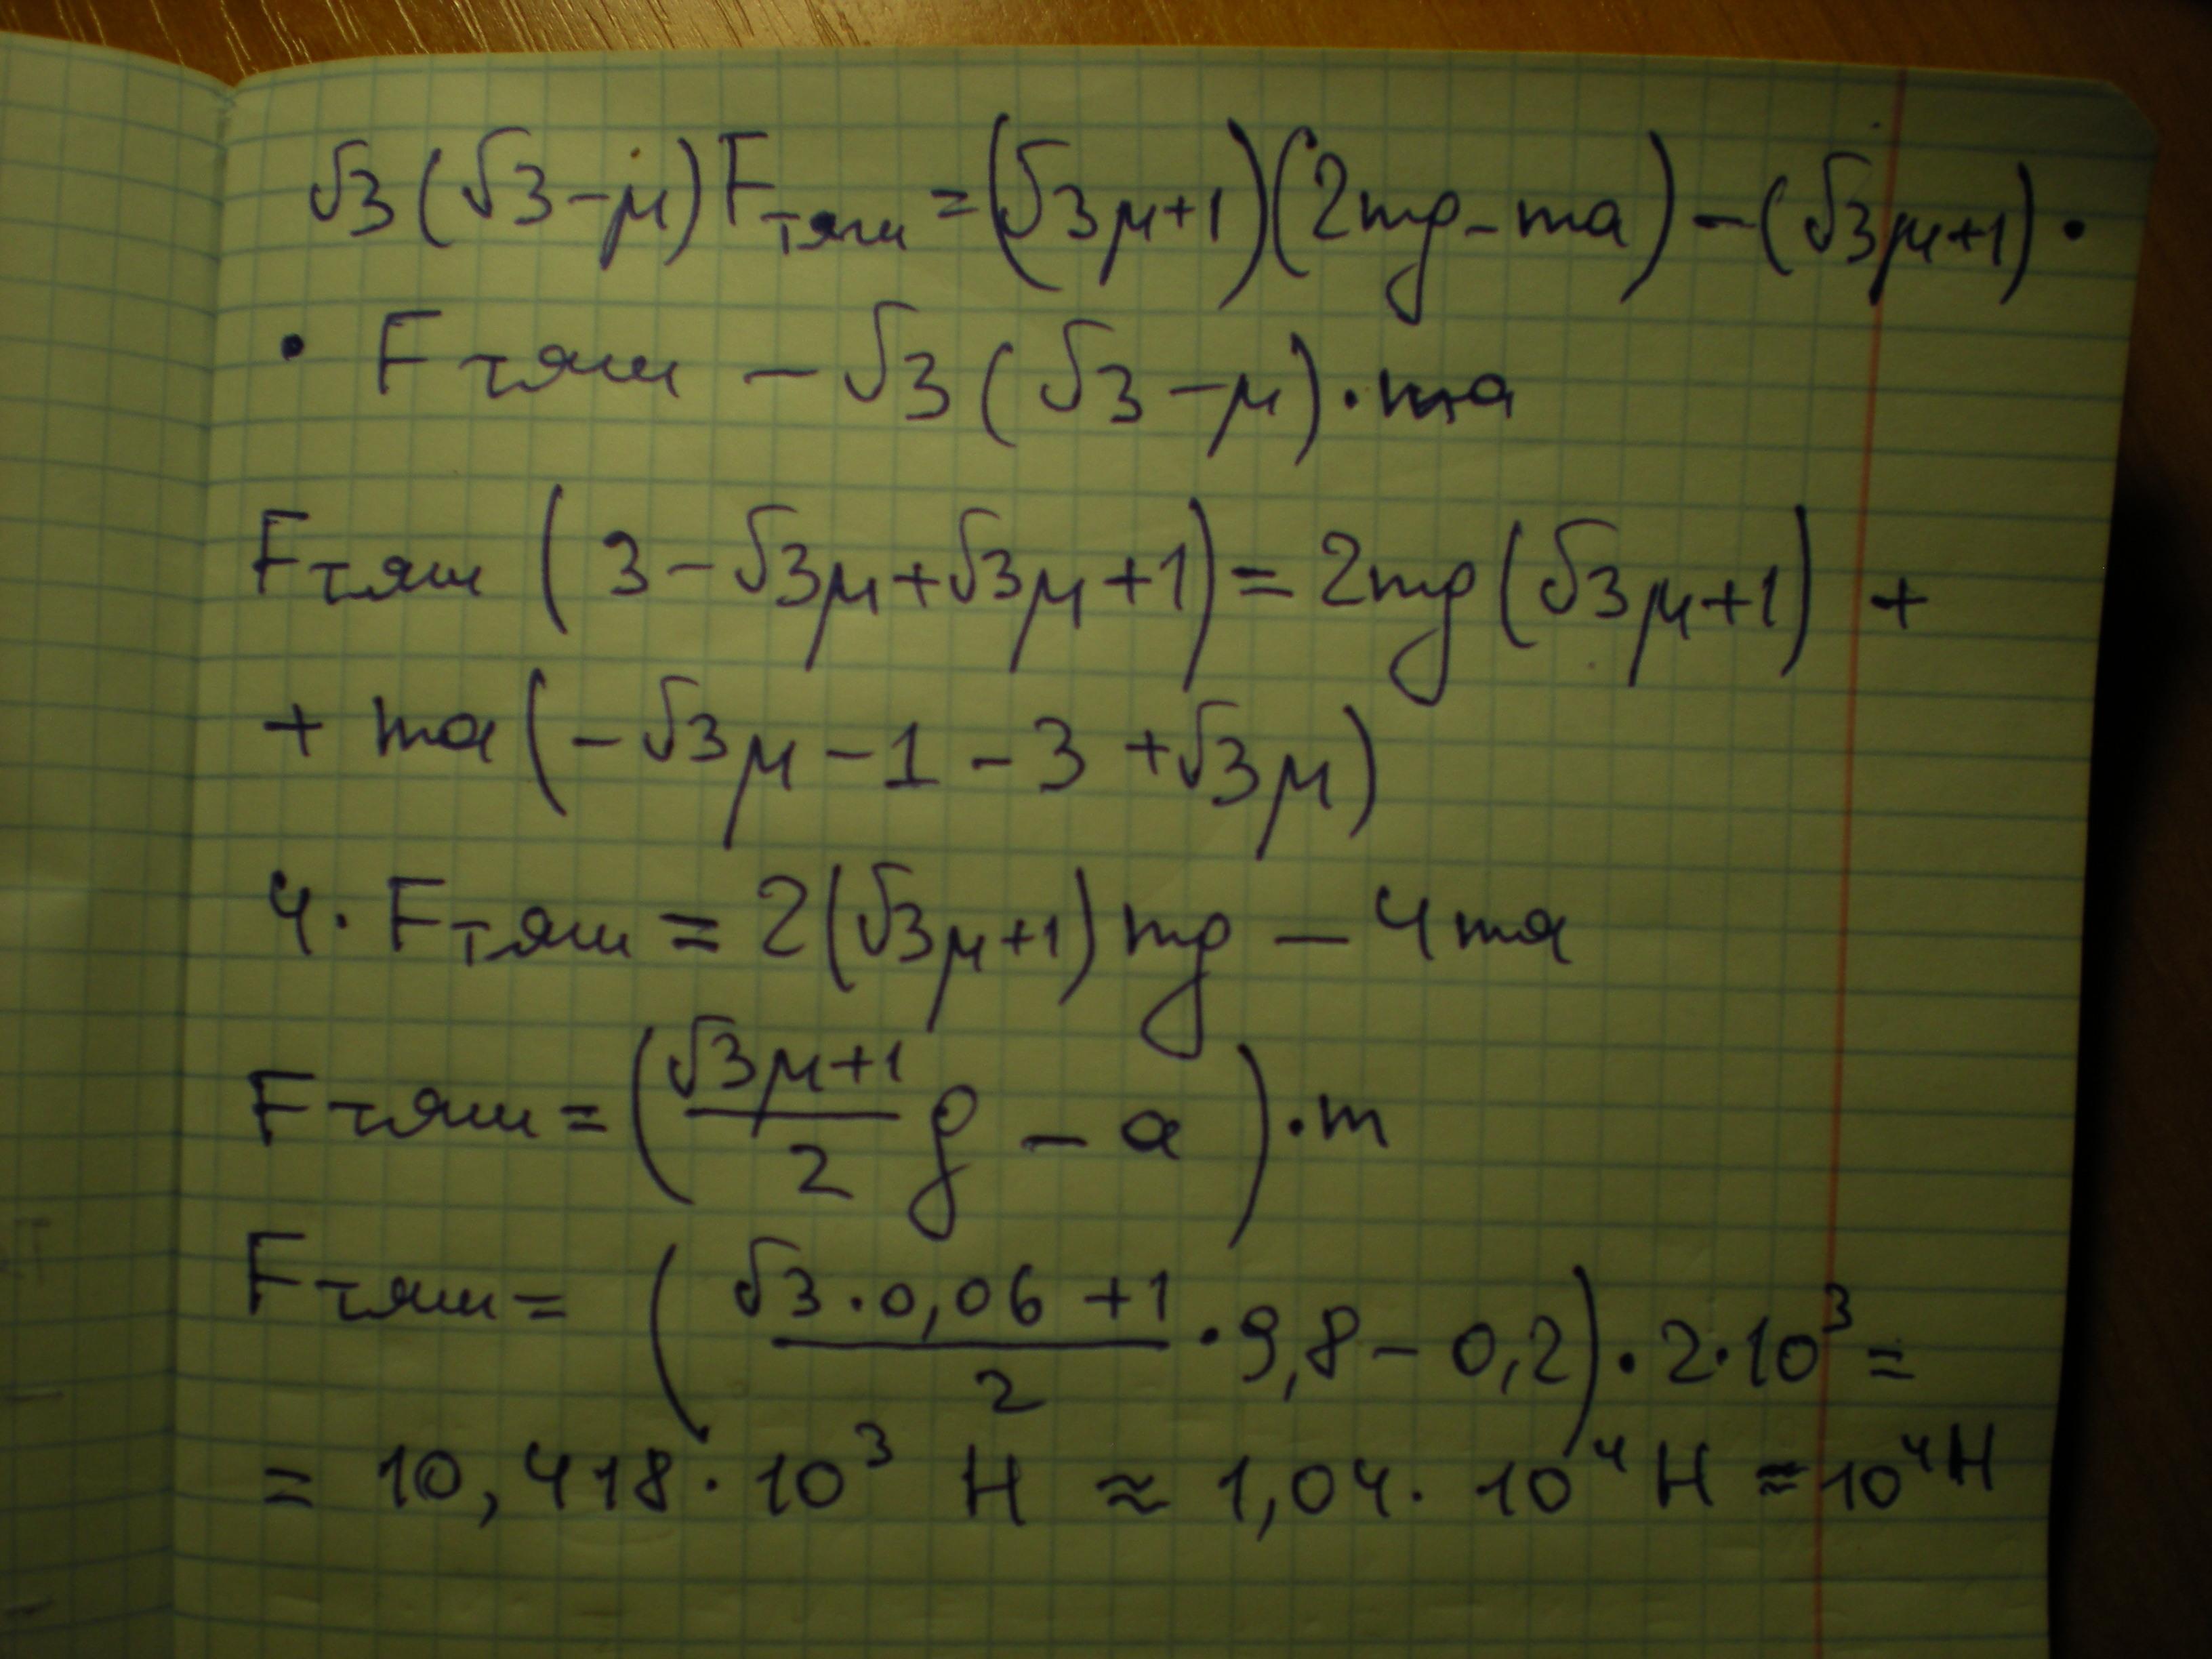 √3(√3-μ)Fтяги =(√3μ+1)(2mg-ma)-(√3μ+1)·
· Fтяги -√3(√3-μ)·ma
Fтяги (3-√3μ+√3μ+1)=2mg(√3μ+1) +
+ ma(-√3μ-1-3+√3μ)
4·Fтяги = 2(√3μ+1)mg - 4ma
Fтяги=((√3μ+1)/2 g - a)·m
Fтяги= ((√3·0,06+1)/2·9,8-0,2)·2·10³=
= 10,418·10³ Н ≈ 1,04·10⁴Н ≈10⁴Н